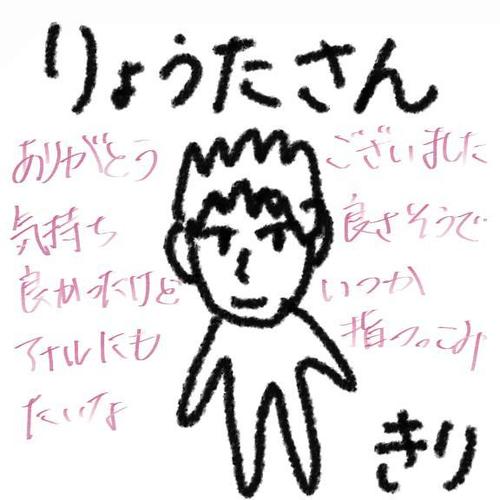 りょうたさん
ありがとう ございました
気持ち 良さそうで
良かったけど いつか
アナルにも 指つっこみ
たいな
きり